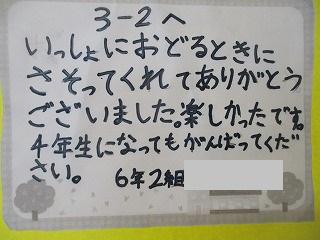 3-2へ
いっしょにおどるときに
さそってくれてありがとう
ございました。楽しかったです。
4年生になってもがんばってくだ
さい。 6年2組